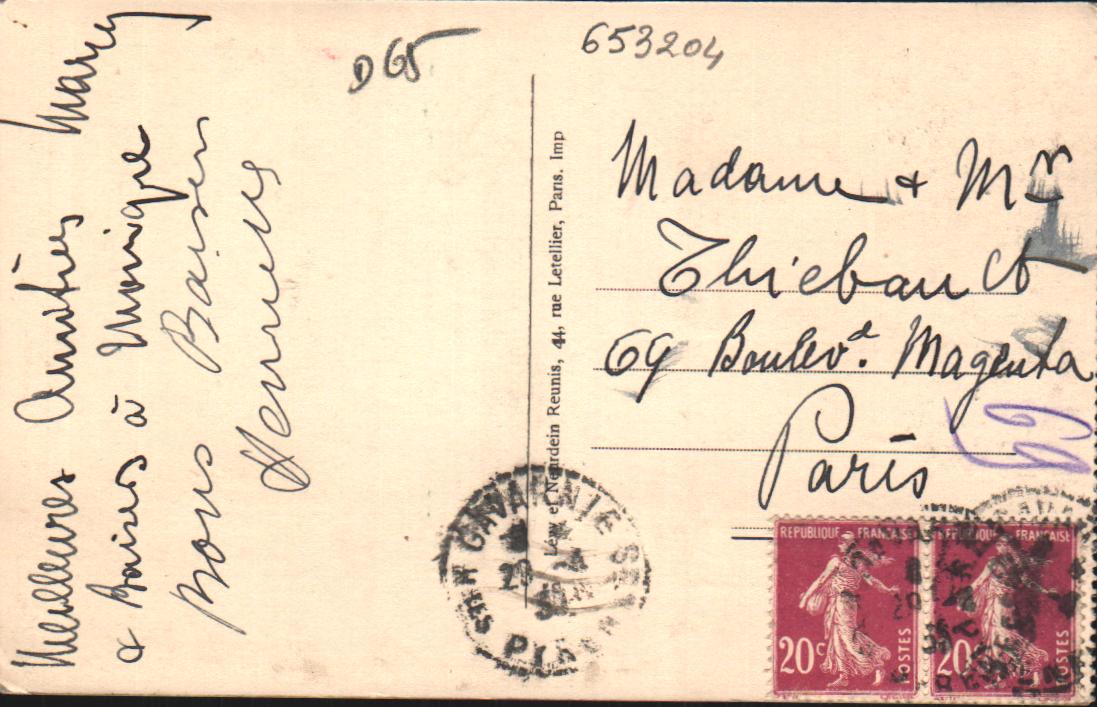 Meilleures Amitiés Marcy
& Baisers à Monique
Bons Baisers
D 65
653204
Lévy et Neurdein Reunis, 44, rue Letellier, Paris. Imp
Madame & Mr
Thiebault
69 Boulevd. Magenta
Paris
69
GAVARNIE
HTES PYR
REPUBLIQUE FRANÇAISE
20c
POSTES
REPUBLIQUE FRANÇAISE
20c